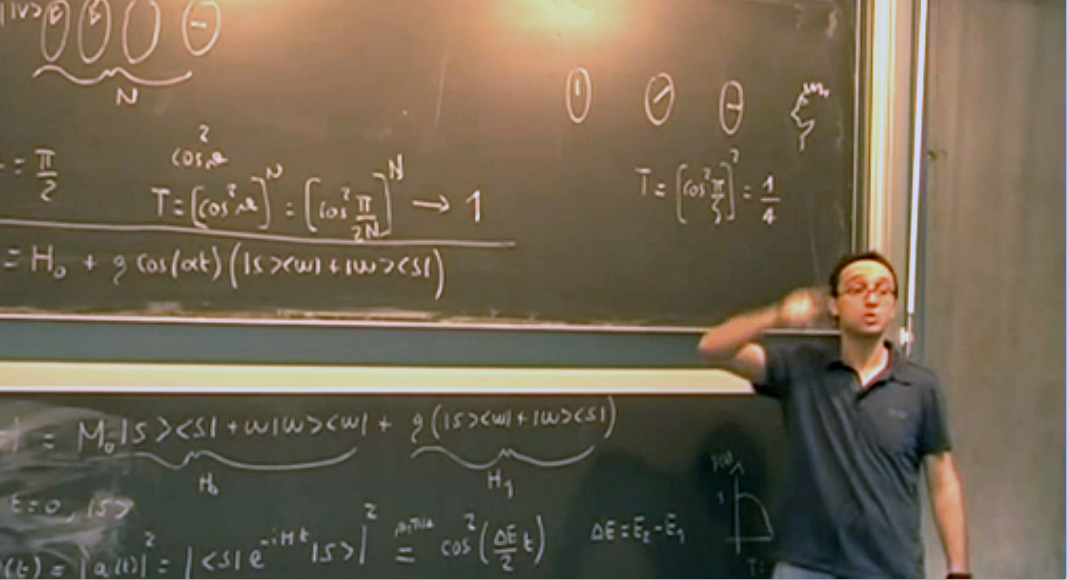 |V>
N
= π/2
cos²α
T = [cos²α]^N = [cos² π/2N]^N → 1
T = [cos² π/4]² = 1/4
= H₀ + g cos(αt) (|S><W| + |W><S|)
= M₀|S><S| + W|W><W| + g(|S><W| + |W><S|)
H₀
H₁
t=0, |S>
(t) = |a(t)|² = |<S| e^{-iHt} |S>|² = cos²(ΔE/2 t)
ΔE = E₂ - E₁
1